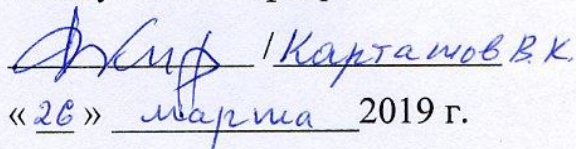 / Карташов В. К.
« 26 » марта 2019 г.